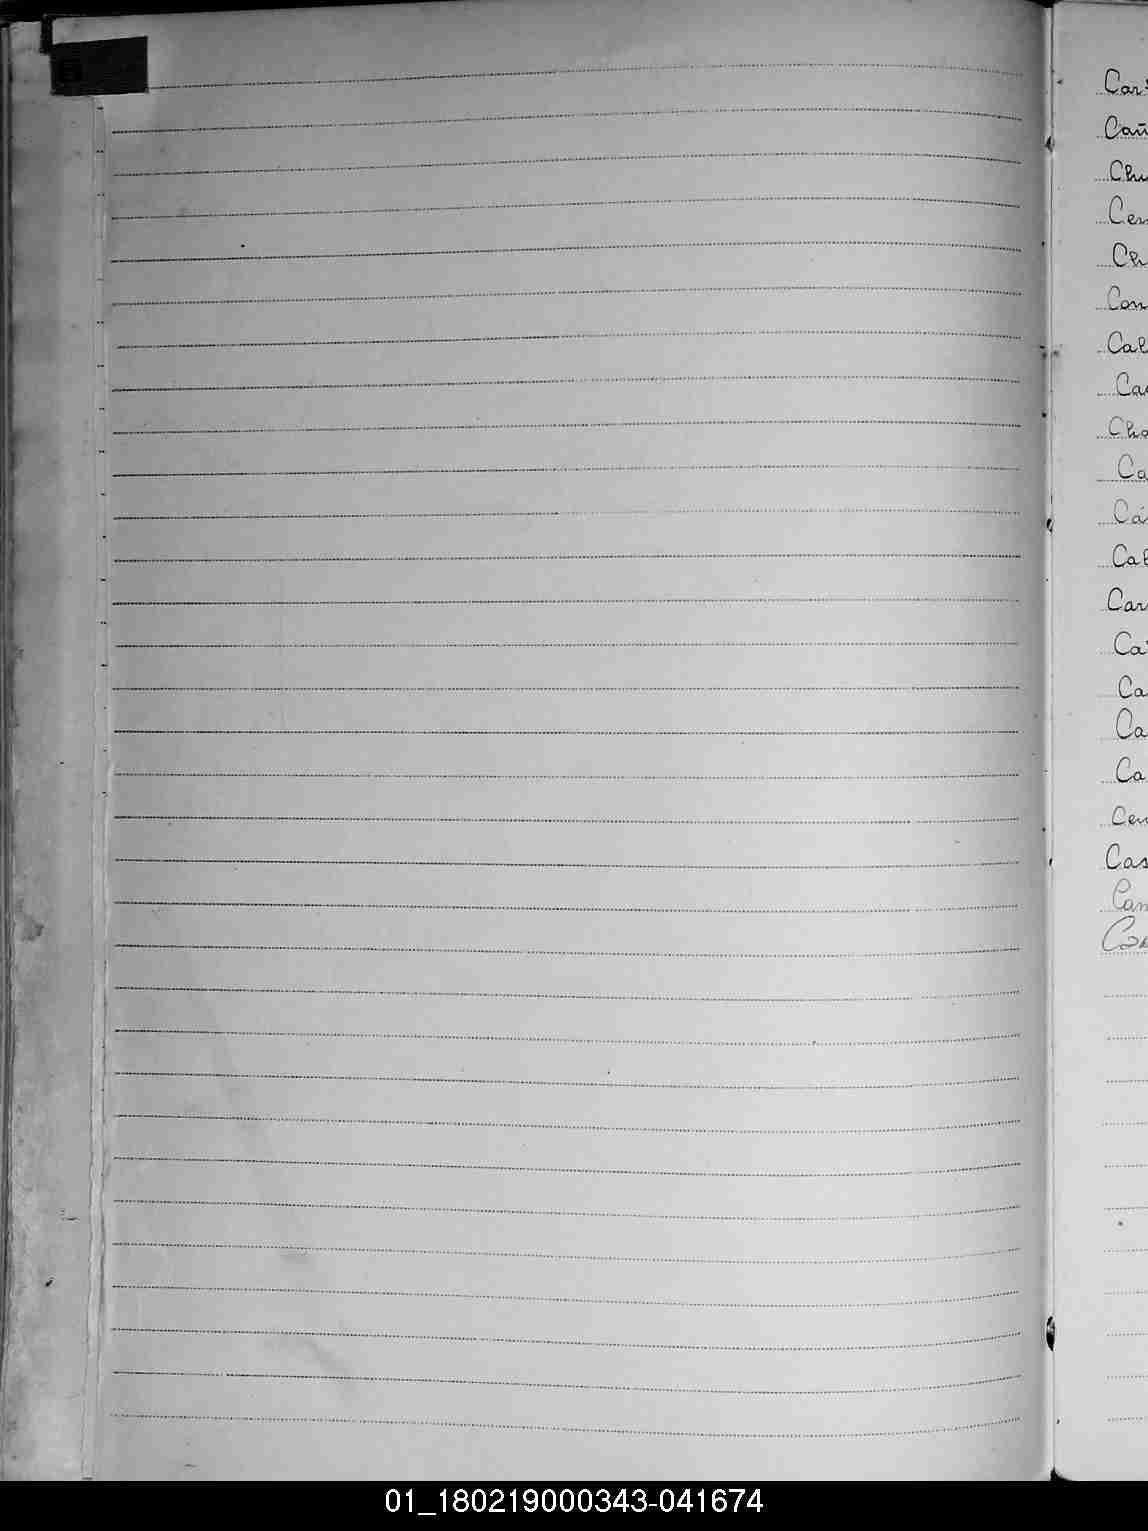 Car
Cañ
Chu
Cer
Ch
Con
Cal
Cas
Cha
Ca
Cá
Cal
Car
Ca
Ca
Ca
Ca
Cer
Cas
Cam
01_180219000343-041674